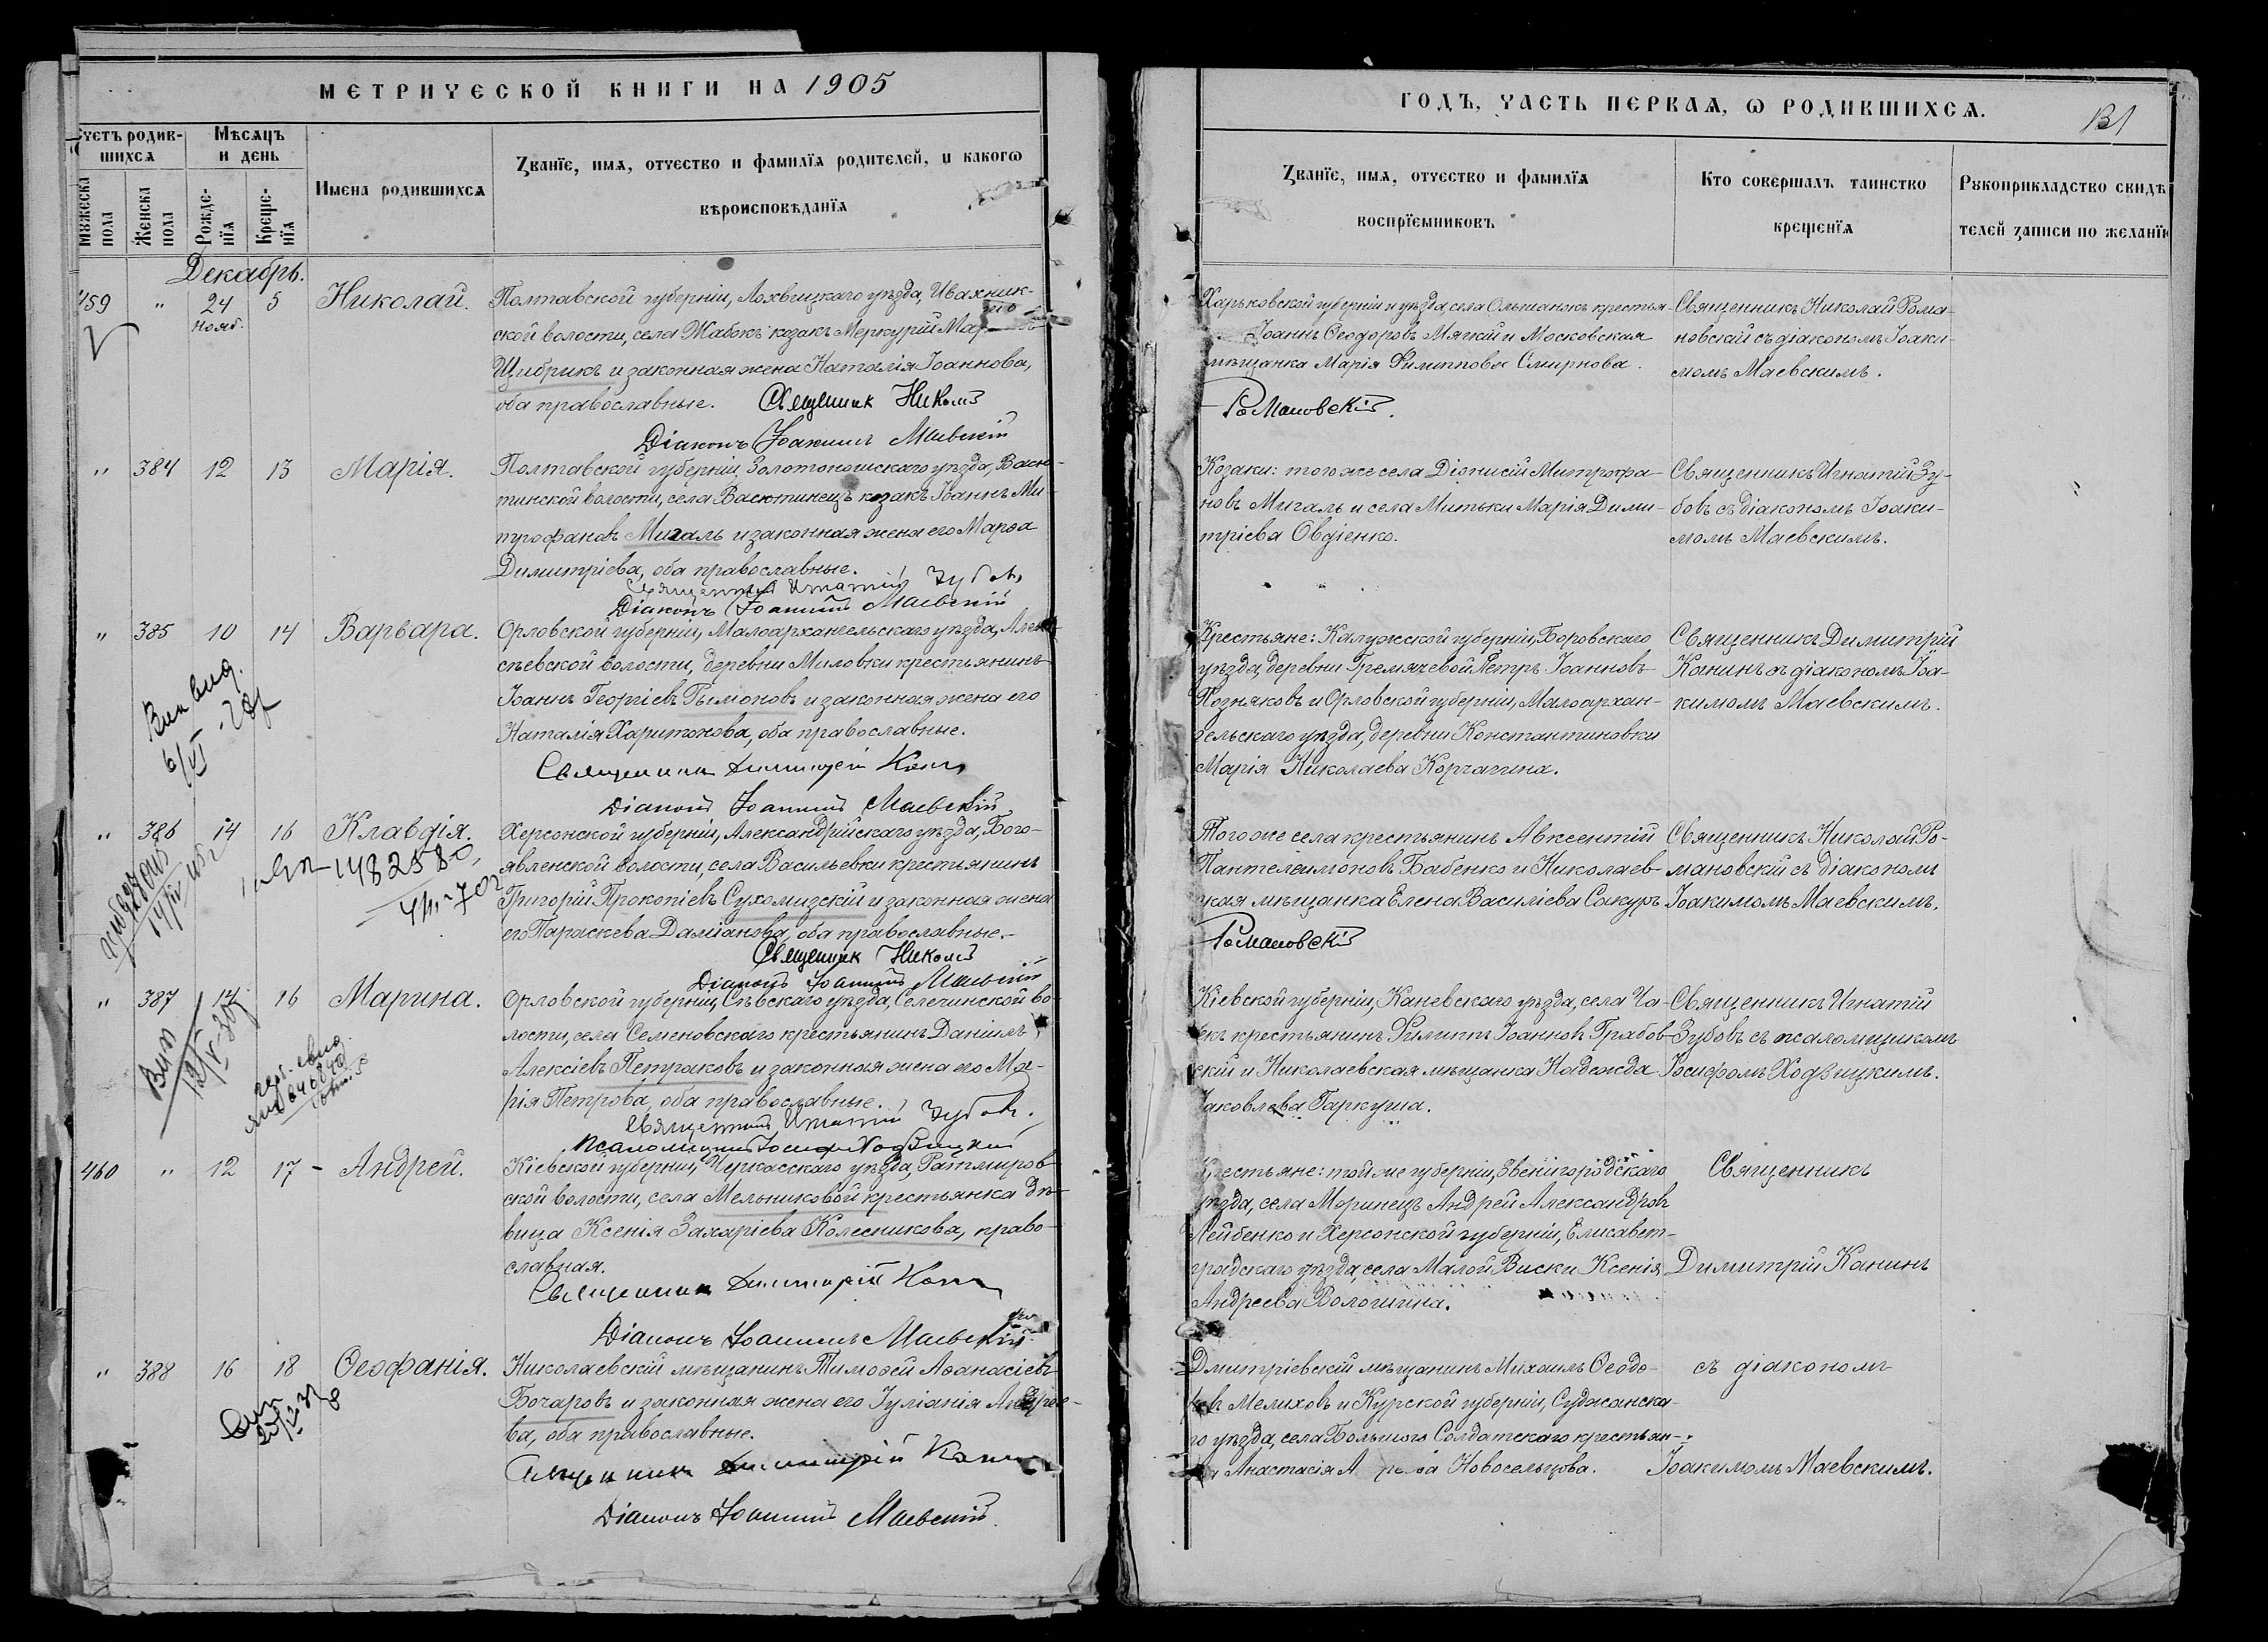 МЕТРИЧЕСКОЙ КНИГИ НА 1905
Счетъ родив-
шихся
Мѣсяцъ
и день
Имена родившихся
Званіе, имя, отчество и фамилія родителей, и какого
вѣроисповѣданія
Мужеска
пола
Женска
пола
Рожде-
нія
Креще-
нія
Декабрь.
459 " 24 5 Николай.
Нояб.
Полтавской губерніи, Лохвицкаго уѣзда, Ивахник-
ской волости, села Жабокъ козакъ Меркурій
Щибрикъ и законная жена Наталія Іоаннова,
оба православные. Священник Николай
Діаконъ Іоакимъ Маевскій
" 384 12 13 Марія.
Полтавской губерніи, Золотоношскаго уѣзда, Васю-
тинской волости, села Васютинецъ козакъ Іоаннъ Ми-
трофановъ Мигаль и законная жена его Марѳа
Димитріева, оба православные.
Священникъ Игнатій Зубовъ
Діаконъ Іоакимъ Маевскій
" 385 10 14 Варвара.
Орловской губерніи, Малоархангельскаго уѣзда, Алек-
сѣевской волости, деревни Миловки крестьянинъ
Іоаннъ Георгіевъ Гымоновъ и законная жена его
Наталія Харитонова, оба православные.
Священникъ Димитрій Канинъ
Діаконъ Іоакимъ Маевскій
" 386 14 16 Клавдія.
1482580
Херсонской губерніи, Александрійскаго уѣзда, Бого-
явленской волости, села Васильевки крестьянинъ
Григорій Прокопіевъ Сухомизскій и законная жена
его Параскева Даміанова, оба православные.
Священник Николай
Діаконъ Іоакимъ Маевскій
" 387 14 16 Марина.
Орловской губерніи, Сѣвскаго уѣзда, Селечинской во-
лости, села Семеновскаго крестьянинъ Даніилъ
Алексіевъ Петраковъ и законная жена его Ма-
рія Петрова, оба православные.
Священникъ Игнатій Зубовъ.
Псаломщикъ Іосифъ Ходзицкій
460 " 12 17 - Андрей.
Кіевской губерніи, Черкасскаго уѣзда, Ратмиров-
ской волости, села Мельниковой крестьянка дѣ-
вица Ксенія Захаріева Колесникова, право-
славная.
Священникъ Димитрій Канинъ
Діаконъ Іоакимъ Маевскій
" 388 16 18 Ѳеофанія.
Николаевскій мѣщанинъ Тимоѳей Аѳанасіевъ
Бочаровъ и законная жена его Іуліанія Андрее-
ва, оба православные.
Священникъ Димитрій Канинъ
Діаконъ Іоакимъ Маевскій.
ГОДЪ, ЧАСТЬ ПЕРВАЯ, О РОДИВШИХСЯ.
Званіе, имя, отчество и фамилія
воспріемниковъ
Кто совершалъ таинство
крещенія
Рукоприкладство свидѣ
телей записи по желанію
Харьковской губерніи и уѣзда, села Ольшанокъ крестья-
Іоаннъ Ѳеодоровъ Мягкій и Московская
мѣщанка Марія Филиппова Смирнова.
Романовскій.
Священникъ Николай Рома-
новскій съ діакономъ Іоаки-
момъ Маевскимъ.
Козаки: того же села Діонисій Митрофа-
новъ Мигаль и села Митьки Марія Дими-
тріева Овдіенко.
Священникъ Игнатій Зу-
бовъ съ діакономъ Іоаки-
момъ Маевскимъ.
Крестьяне: Калужской губерніи, Боровскаго
уѣзда, деревни Гремячевой Петръ Іоанновъ
Позняковъ и Орловской губерніи, Малоархан-
гельскаго уѣзда, деревни Константиновки
Марія Николаева Корчагина.
Священникъ Димитрій
Канинъ съ діакономъ Іоа-
кимомъ Маевскимъ.
Того же села крестьянинъ Авксентій
Пантелеимоновъ Бабенко и Николаев-
ская мѣщанка Елена Василіева Сакуръ
Романовскій
Священникъ Николай Ро-
мановскій съ діакономъ
Іоакимомъ Маевскимъ.
Кіевской губерніи, Каневскаго уѣзда, села
крестьянинъ Филиппъ Іоанновъ Грабов-
скій и Николаевская мѣщанка Надежда
Іаковлева Гаркуша.
Священникъ Игнатій
Зубовъ съ псаломщикомъ
Іосифомъ Ходзицкимъ.
Крестьяне: той же губерніи, Звенигородскаго
уѣзда, села Моринецъ Андрей Александровъ
Лейбенко и Херсонской губерніи, Елисавет-
градскаго уѣзда, села Малой Виски Ксенія
Андреева Волошина.
Священникъ
Димитрій Канинъ
Дмитріевскій мѣщанинъ Михаилъ Ѳеодо-
ровъ Мелиховъ и Курской губерніи, Суджанска-
го уѣзда, села Большого Солдатскаго крестьян-
ка Анастасія Новосельцова.
съ діакономъ
Іоакимомъ Маевскимъ.